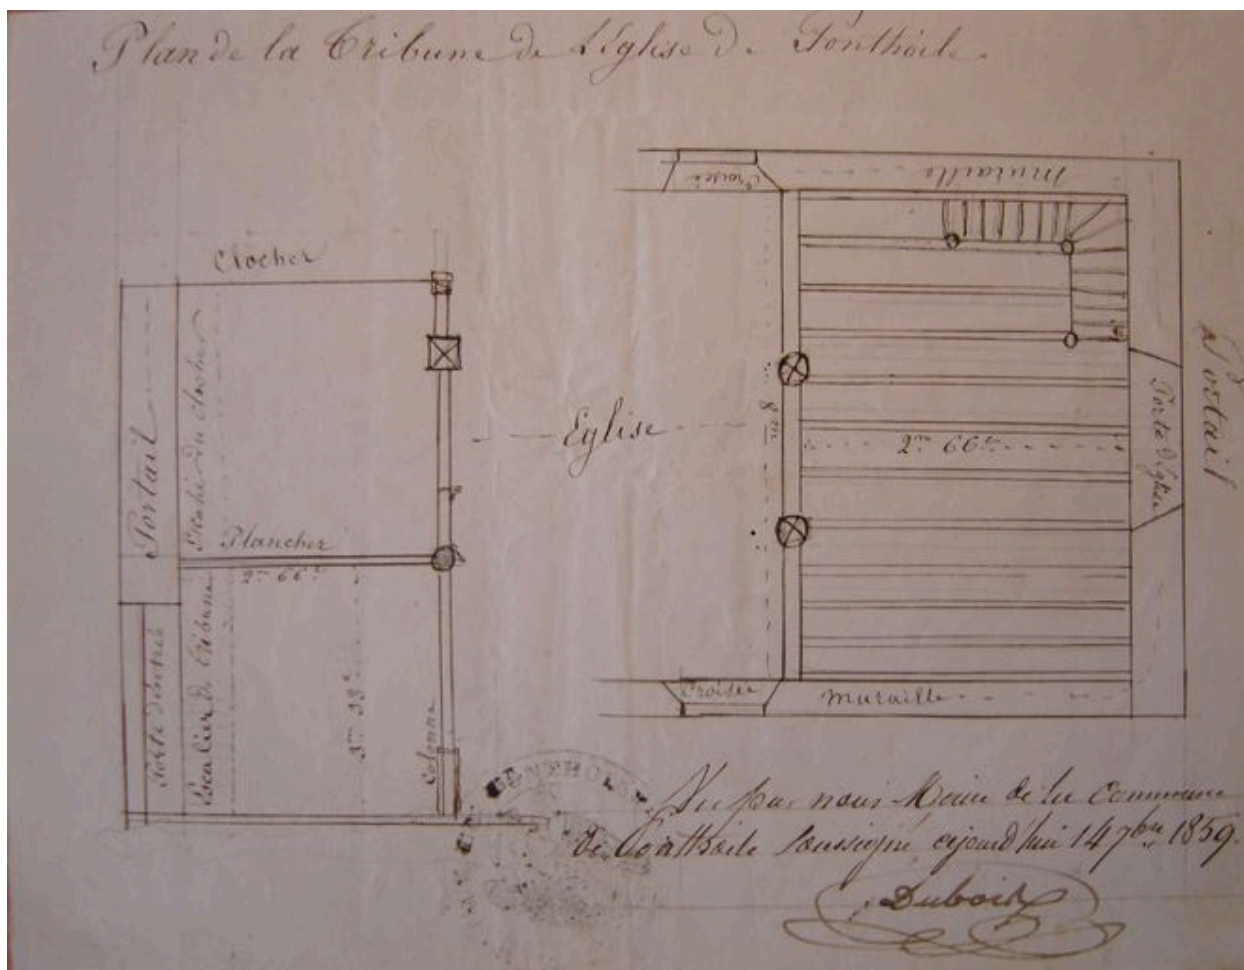 Plan de la Tribune de L'église de Ponthoile.
Clocher
Portail
Escalier du clocher
Plancher
2m 66c
Escalier de Tribune
3m 33c
Colonne
Eglise
Croisée
Muraille
8m
2m 66c
Porte d'église
Portail
Croisée
Muraille
PONTHOILE
Vu par nous Maire de la Commune
de Ponthoile soussigné cejourd'hui 14 7bre 1859.
Dubois